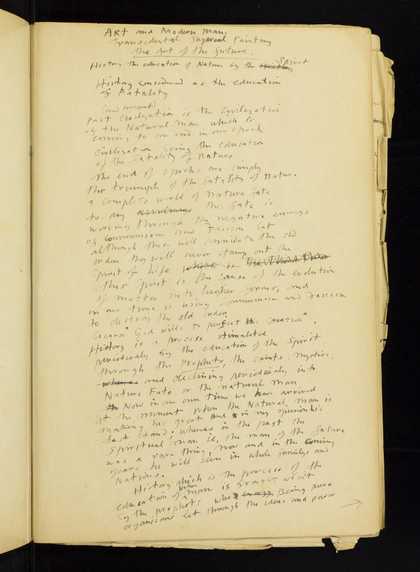 Art and Modern Man,
Transcendental Imperial Painting
The Art of the Future.
History the education of Nature by the Spirit
History considered as the education
of Fatality
Past Civilization is the Civilization
of the Natural man which is
coming to an end in our epoch
Civilization being the education
of the Fatality of Nature
The end of epochs are simply
the triumph of the fatality of Nature.
a complete world of Nature fate
to day this fate is
working through the negative energy
of Communism and Fascism but
although they will annihilate the old
order they will never stamp out the
Spirit of life
this spirit is the cause of the evolution
of matter into higher forms, and
in our time is using Communism and Fascism
to destroy the old order
because God wills to perfect the creation".
History is a process stimulated
periodically by the education of the Spirit
through the Prophets, the Saints, Mystics,
and declining periodically into
Nature Fate or the natural man
Now in our own time we have arrived
at the moment when the Natural man is
making his great and in my opinion his
last stand. whereas in the past the
Spiritual man is, the man of the future,
was a rare thing, now and in the coming
years he will be seen in whole families and
Nations.
History which is the process of the
education of man is brought about
by the prophets who being pure
organisms let through the ideas and power